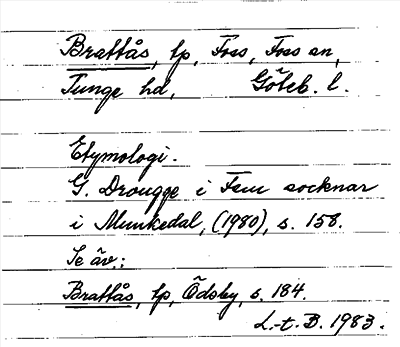 Brattås, lp, Foss, Foss sn,
Tunge hd, Göteb. l.
Etymologi.
G. Drougge i Fem socknar
i Munkedal, (1980), s. 158.
Se äv.:
Brattås, lp, Ödsby, s. 184.
L.-t. B. 1983.